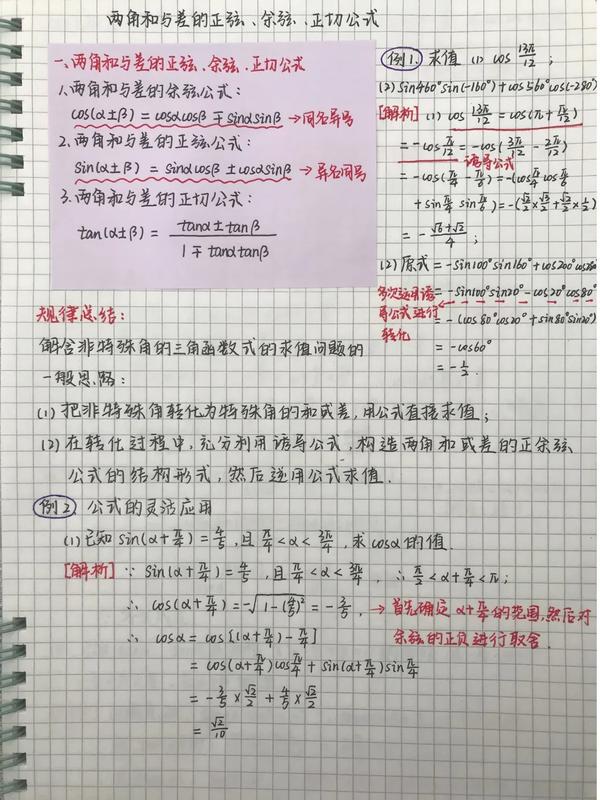 两角和与差的正弦、余弦、正切公式
一、两角和与差的正弦、余弦、正切公式
1.两角和与差的余弦公式：
cos(α±β) = cosαcosβ ∓ sinαsinβ → 同名异号
2.两角和与差的正弦公式：
sin(α±β) = sinαcosβ ± cosαsinβ → 异名同号
3.两角和与差的正切公式：
tan(α±β) = (tanα±tanβ)/(1∓tanαtanβ)
例1. 求值 (1) cos 13π/12；
(2) sin460°sin(-160°)+cos560°cos(-280°)
[解析] (1) cos 13π/12 = cos(π+π/12)
= -cos π/12 = -cos(3π/12 - 2π/12)
诱导公式
= -cos(π/4 - π/6) = -(cos π/4 cos π/6
+ sin π/4 sin π/6) = -(√2/2 × √3/2 + √2/2 × 1/2)
= - (√6+√2)/4；
(2) 原式 = -sin100°sin160°+cos200°cos280°
= -sin100°sin20° - cos20°cos80°
多次运用诱
导公式进行
转化
= -(cos80°cos20°+sin80°sin20°)
= -cos60°
= -1/2.
规律总结：
解含非特殊角的三角函数式的求值问题的
一般思路：
(1) 把非特殊角转化为特殊角的和或差，用公式直接求值；
(2) 在转化过程中，充分利用诱导公式，构造两角和或差的正余弦
公式的结构形式，然后逆用公式求值.
例2 公式的灵活应用
(1) 已知 sin(α+π/4) = 4/5，且 π/4 < α < 3π/4，求 cosα 的值.
[解析] ∵ sin(α+π/4) = 4/5，且 π/4 < α < 3π/4，∴ π/2 < α+π/4 < π；
∴ cos(α+π/4) = -√(1-(4/5)²) = -3/5. → 首先确定 α+π/4 的范围，然后对
余弦的正负进行取舍.
∴ cosα = cos[(α+π/4) - π/4]
= cos(α+π/4)cos π/4 + sin(α+π/4)sin π/4
= -3/5 × √2/2 + 4/5 × √2/2
= √2/10